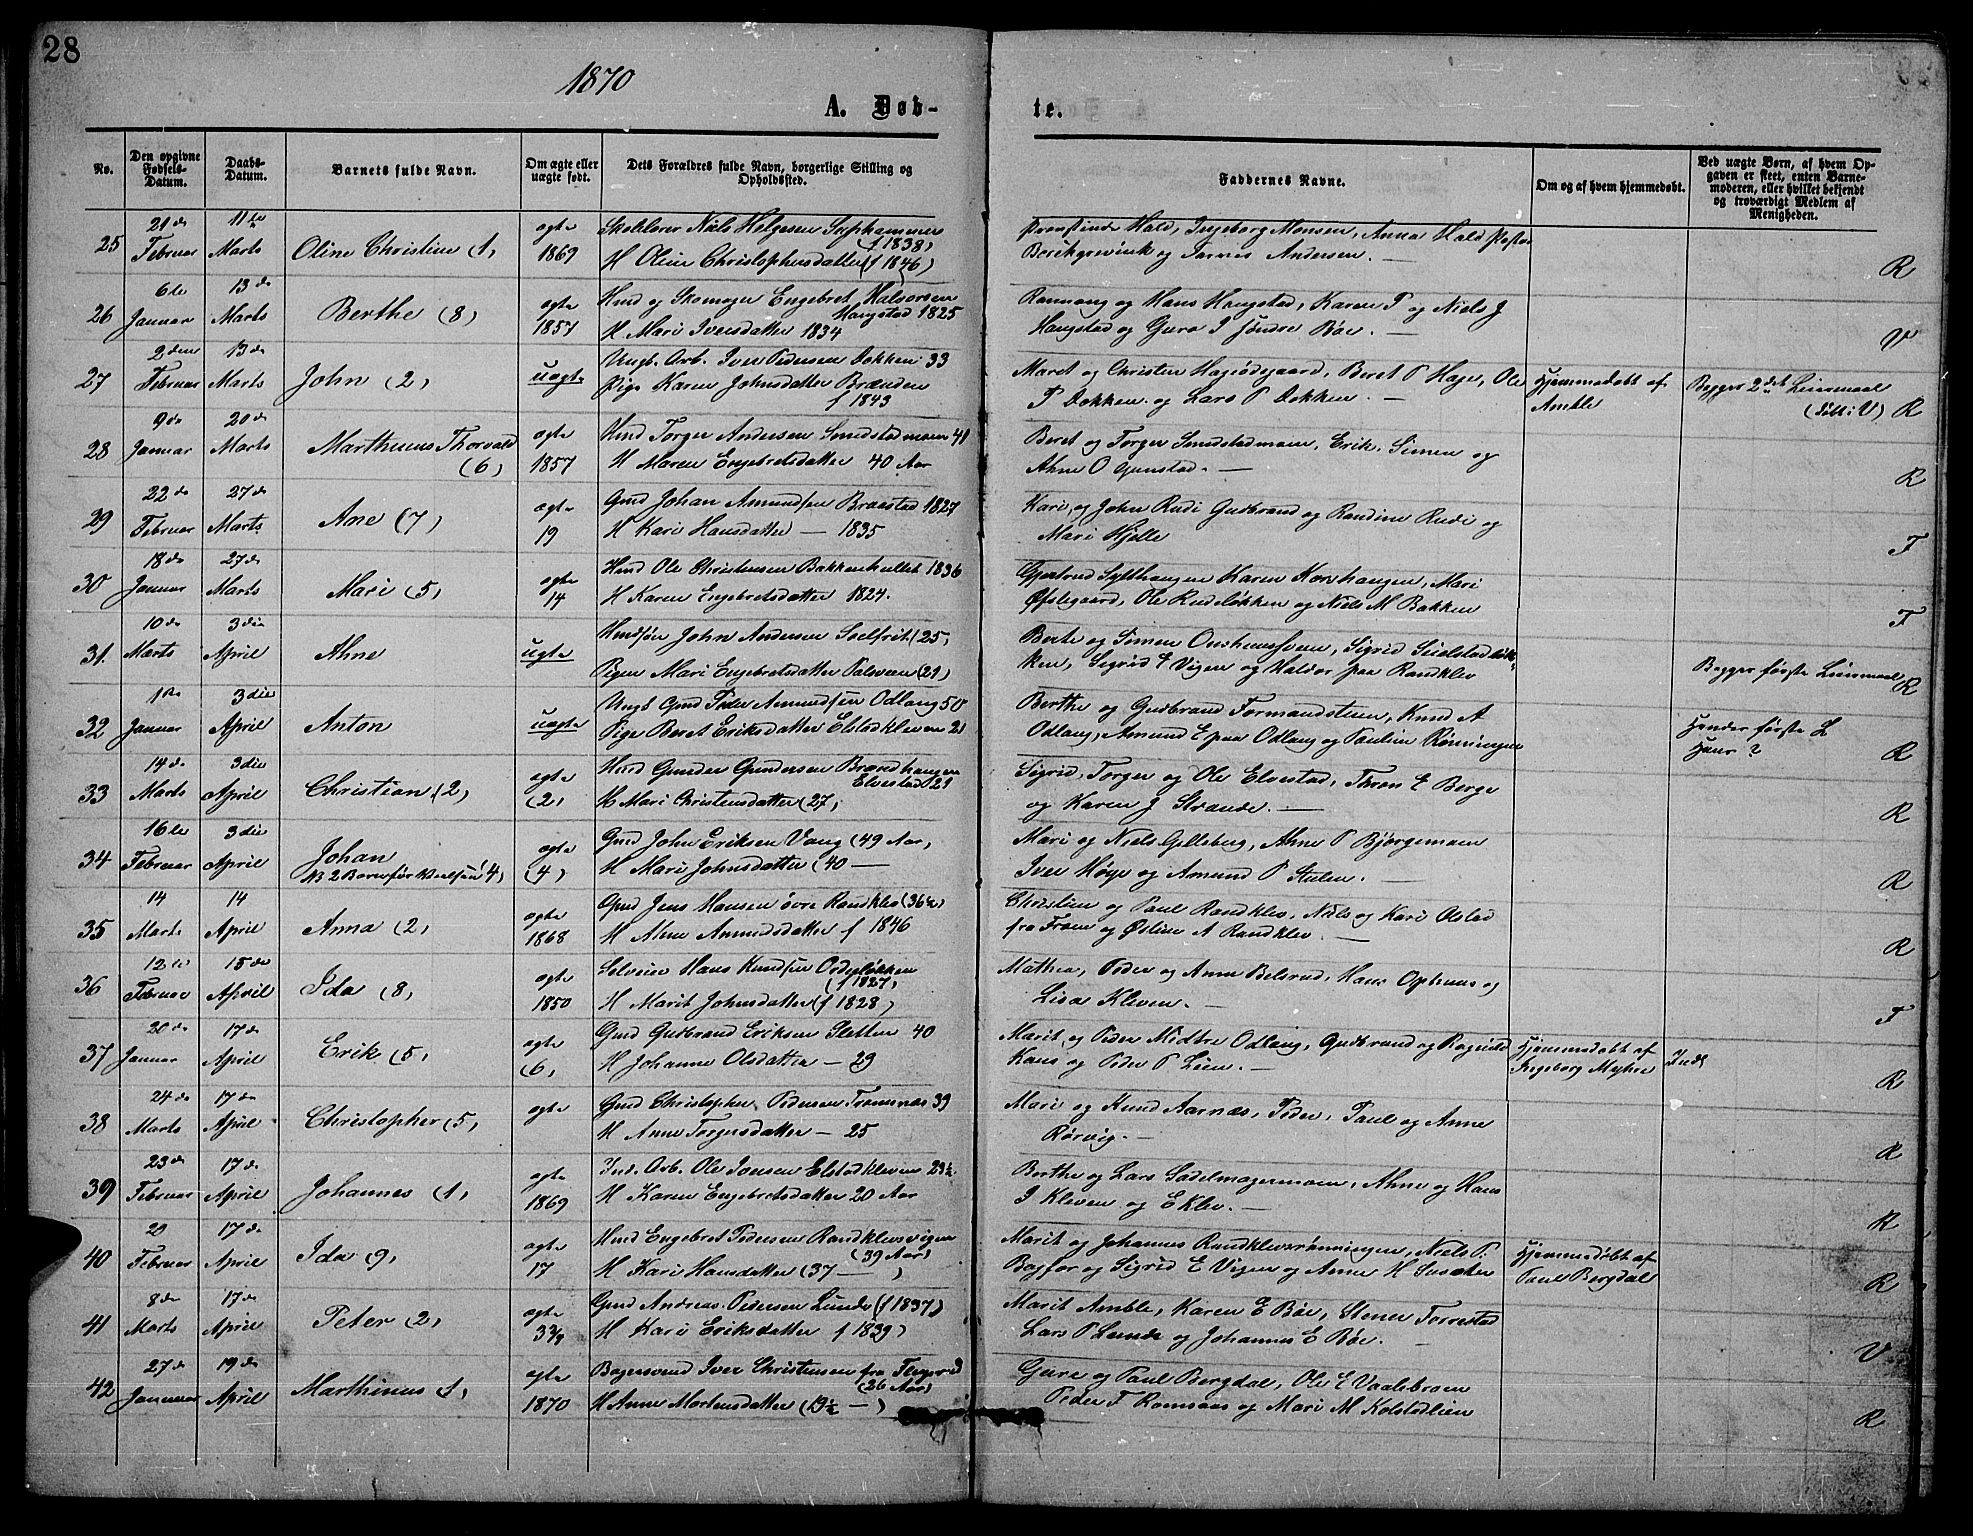 28
1870
A. Døb-
te.
No.
Den opgivne Fødsels-Datum.
Daabs-Datum.
Barnets fulde Navn.
Om ægte eller uægte født.
Dets Forældres fulde Navn, borgerlige Stilling og Opholdssted.
Faddernes Navne.
Om og af hvem hjemmedøbt.
Ved uægte Børn, af hvem Opgaven er skeet, enten Barnemoderen, eller hvilket bekjendt og troværdigt Medlem af Menigheden.
25 21de Februar 11te Marts Oline Christine (1) ægte 1869 Skolelærer Niels Helgesen (f 1838)
H Oline Christophersdatter (f 1846)
Hald, Ingeborg Monsen, Anna Hald
og Andersen. —
R
26 6te Januar 13de Marts Berthe (8) ægte 1857 Hmd og Skomager Engebret Halvorsen Haugstad 1825
H Mari Iversdatter 1834
Rønnaug og Hans Haugstad, Karen P og Niels J
Haugstad og Guro I søndre Bøe. —
V
27 2den Februar 13de Marts John (2) uægte Ungk. Arb. Iver Pedersen Dokken 33
Pige Karen Johnsdatter Brænden f 1843
Maret og Christen Hageødegaard, Beret P Hage, Ole
P Dokken og Lars P Dokken. —
Hjemmedøbt af Amble
Begges 2det Leiermaal
R
28 9de Januar 20de Marts Marthinus Thorvald (6) ægte 1857 Hmd Torger Andersen Smedstadmoen 41
H Maren Engebretsdatter 40 Aar
Beret og Torger Smedstadmoen, Erik, Simen og
Ahne O —
R
29 22de Februar 27de Marts Ane (7) ægte 19 Gmd Johan Amundsen Braastad 1827
H Kari Hansdatter — 1835
Kari og John Rudi Gudbrand og Randine Rudi og
Mari Hjelle
F
30 18de Januar 27de Marts Mari (5) ægte 14 Hmd Ole Christensen Bakkenhullet 1836
H Karen Engebretsdatter 1824.
Gjertrud Sylthaugen Karen Korshaugen, Mari
Øfstegaard, Ole Rudsløkken og Niels M Bakken
F
31. 10de Marts 3die April Ahne uægte John Andersen (25)
Pigen Mari Engebretsdatter (29)
Berte og Simen Sigrid
Sigrid E Vigen og Haldor paa Randklev
Begges første Leiermaal
R
32 1ste Januar 3die April Anton uægte Ungk Gmd Peder Amundsen Odlaug 50
Pige Beret Eriksdatter Elstadkleven 21
Berthe og Gudbrand Formandsteen, Knud A
Odlaug, Amund E paa Odlaug og Pauline Rønningen
Hendes første L
Hans ?
R
33 14de Marts 3die April Christian (2) ægte (2) Hmd Gunder Gundersen Brændhaugen Elvestad 29
H Mari Christensdatter (27)
Sigrid, Torger og Ole Elvestad, Thron E Berge
og Karen J Strande. —
R
34 16te Februar 3die April Johan
4) ægte (4) Gmd John Eriksen Vang (49 Aar)
H Mari Johnsdatter (40 —
Mari og Niels Gillebug, Ahne P Bjørgemoen
Iver Høye og Amund P Stulen. —
R
35 14 Marts 14 April Anna (2) ægte 1868 Gmd Jens Hansen øvre Randklev (36½)
H Ahne Amundsdatter f 1846
Christine og Paul Randklev, Niels og Kari Olstad
fra Fron og Østine A Randklev. —
R
36 12te Februar 15de April Ida (8) ægte 1850 Selveier Hans Knudsen (f 1827)
H Marit Johnsdatter (f 1828)
Mathea, Peder og Anne Belsrud, Hans Opheim og
Lisa Kleven. —
F
37 20de Januar 17de April Erik (5) ægte (6) Gmd Gudbrand Eriksen Sletten 40
H Johanne Olsdatter — 29
Marit og Peder Midtre Odlaug, Gudbrand og Ragnild
Kans og Peder P Lien. —
Hjemmedøbt af Ingeborg Myhre
Inds
R
38 24de Marts 17de April Christopher (5) ægte Gmd Christopher Pedersen Tromsnæs 39
H Anne Torgersdatter — 25
Mari og Knud Aarnæs, Peder, Paul og Anne
Rørvig. —
R
39 23de Februar 17de April Johannes (1) ægte 1869 Ind. Arb. Ole Jonsen Elstadkleven 23½
H Karen Engebretsdatter 20 Aar
Berthe og Lars Sadelmagermoen, Ahne og Hans
J Kleven og E Klev. —
R
40 20 Februar 17de April Ida (9) ægte 17 Hmd Engebret Pedersen Randklevsvigen (39 Aar)
H Kari Hansdatter (37 — )
Marit og Johannes Randklevsrønningen, Niels P.
Bagfor og Sigrid E Vigen og Anne H
Hjemmedøbt af Paul Bergdal
R
41 8de Marts 17de April Peter (2) ægte 3¾ Gmd Andreas Pedersen Lunde (f 1837)
H Kari Eriksdatter f 1839)
Marit Amble, Karen E Bøe, Stener Torrestad
Lars P Lunde og Johannes E Bøe. —
V
42 27de Januar 19de April Marthinus (1) ægte 1870 Bagersvend Iver Christensen fra (26 Aar)
H Anne Mortensdatter (19½ — )
Gure og Paul Bergdal, Ole E Vaalsbroen
Peder F Romsaas og Mari M Kolstadlien
R